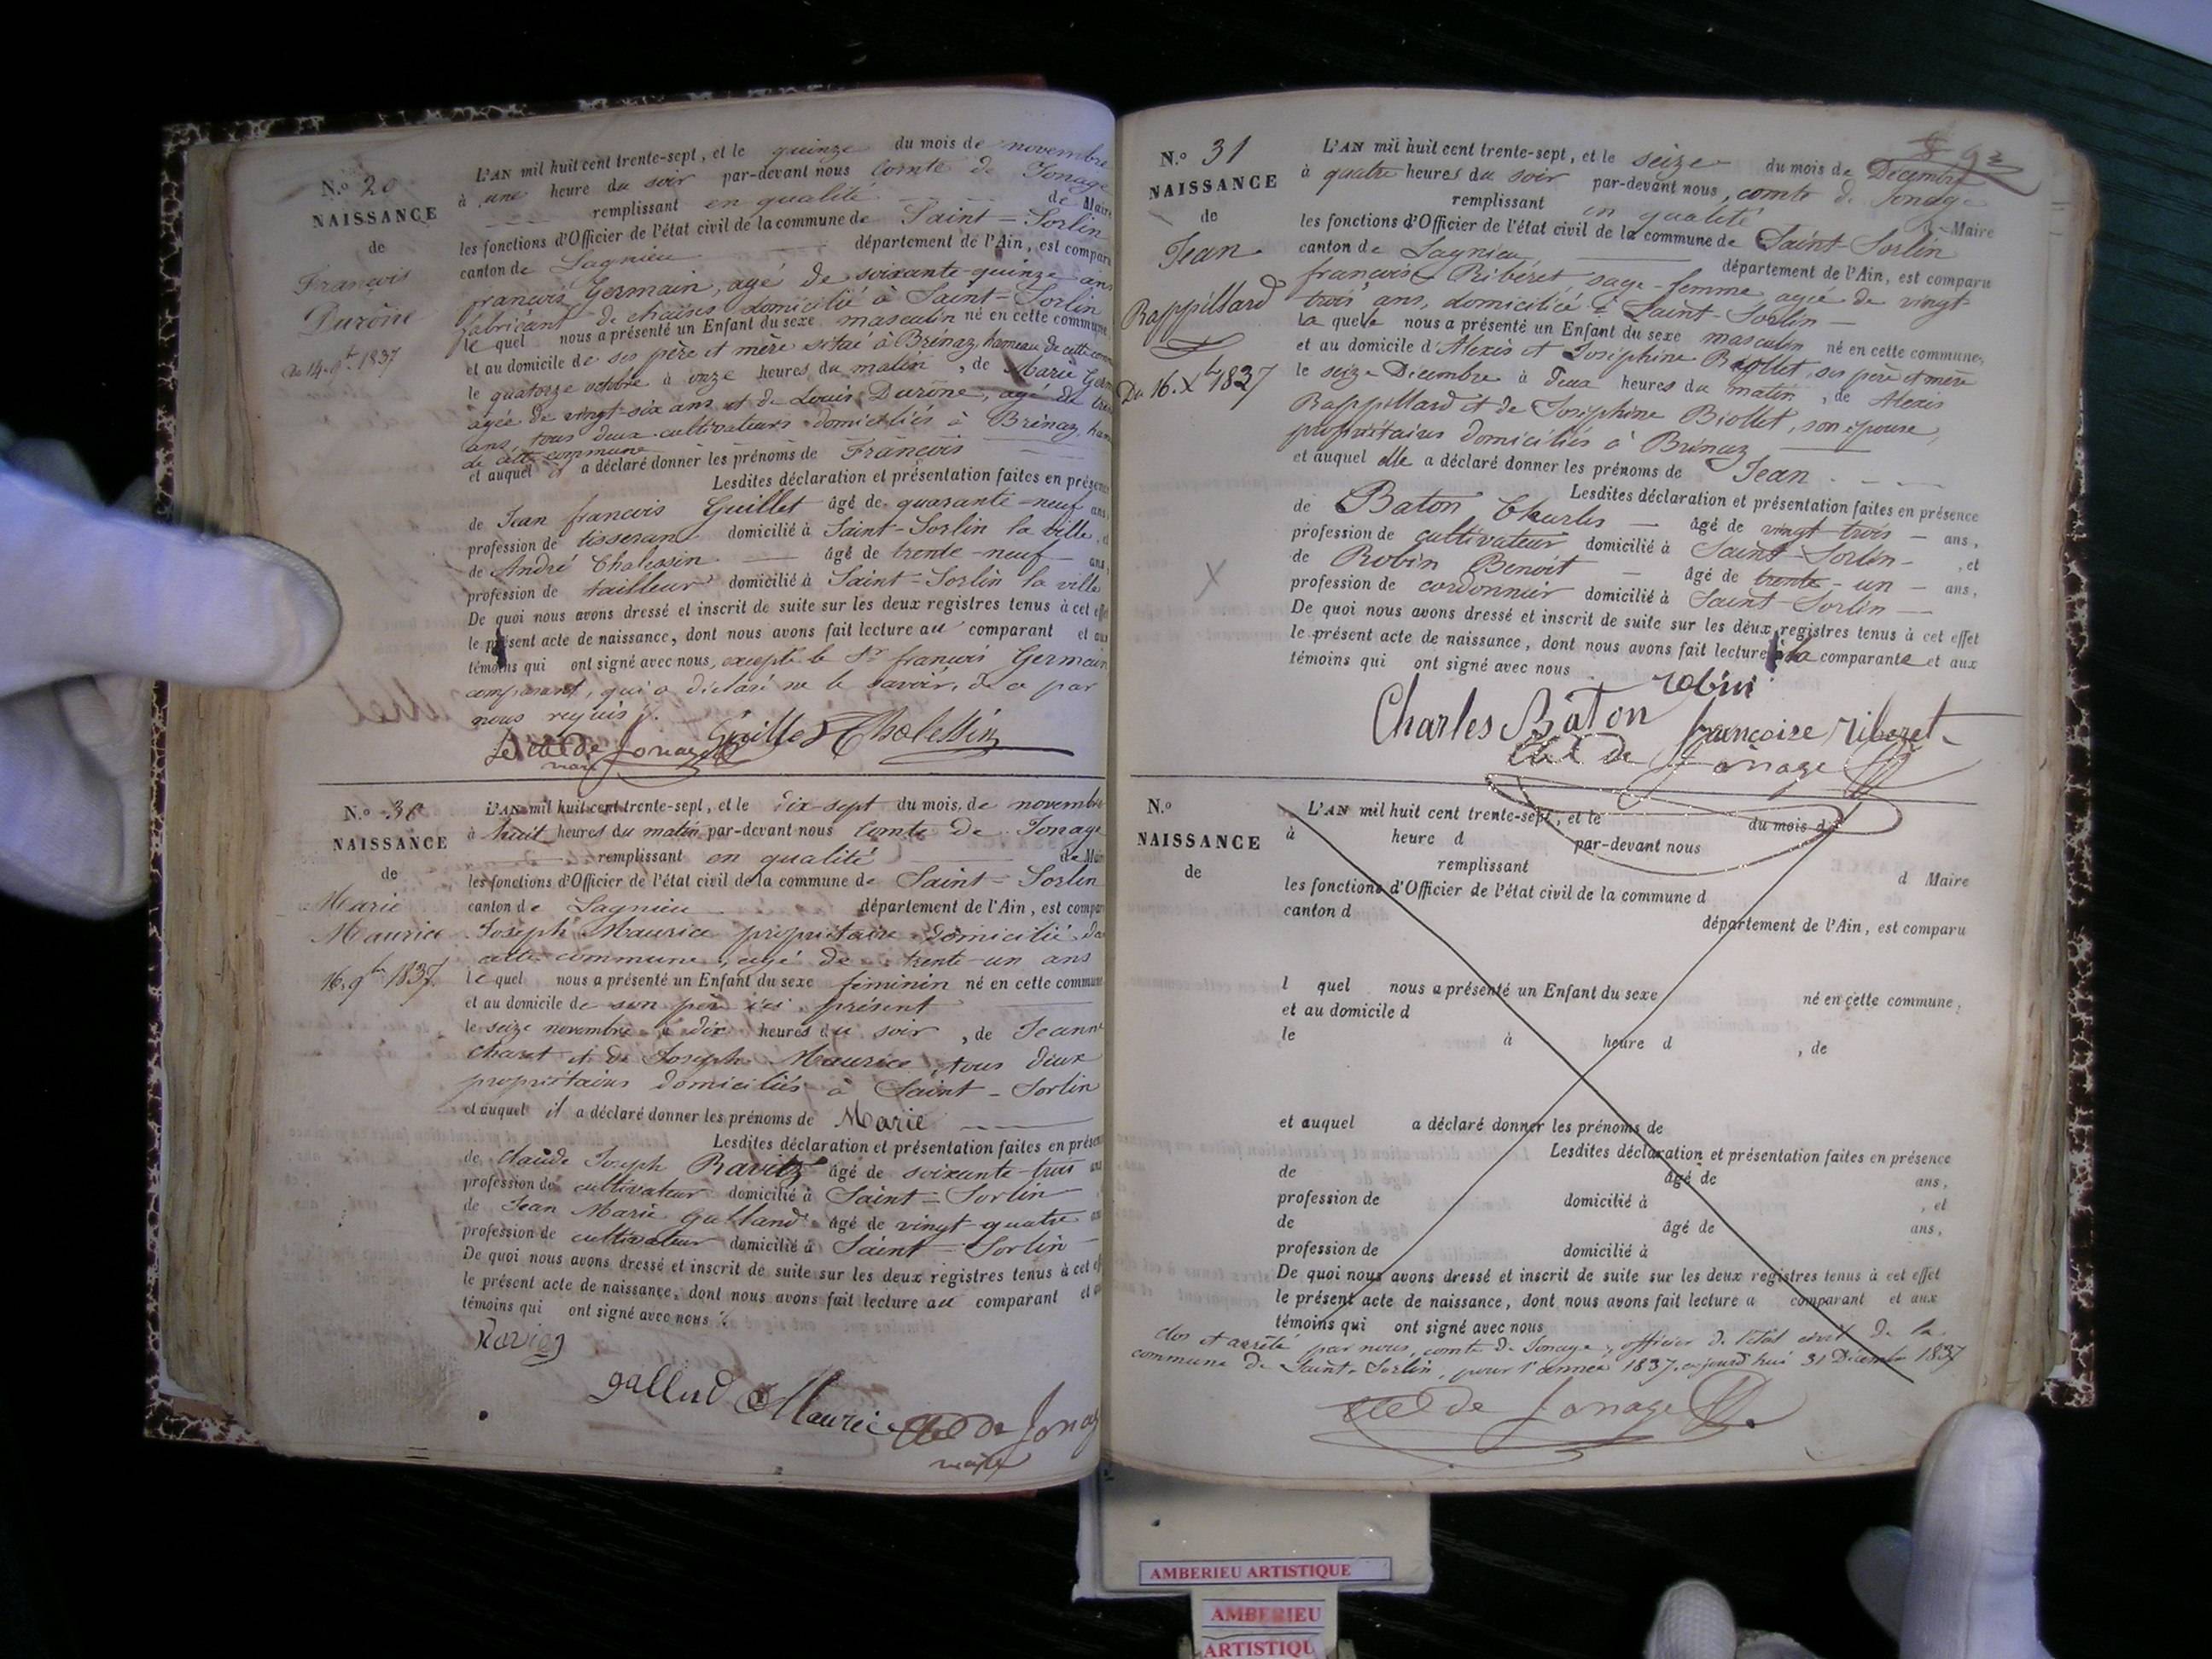 N.o 20
NAISSANCE
de
François
Durône
Du 14. 8.bre 1837
L'AN mil huit cent trente-sept, et le quinze du mois de novembre
à une heure du soir par-devant nous comte de Jonage
remplissant en qualité de Maire
les fonctions d'Officier de l'état civil de la commune de Saint-Sorlin
canton de Lagnieu département de l'Ain, est comparu
françois Germain, agé de soixante-quinze ans
fabricant de chaises domicilié à Saint-Sorlin
le quel nous a présenté un Enfant du sexe masculin né en cette commune
et au domicile de ses père et mère situé à Brénaz, hameau de cette
le quatorze octobre à onze heures du matin, de Marie Germ
agée de vingt-six ans et de Louis Durône, agé de
ans, tous deux cultivateurs domiciliés à Brénaz, ham
de cette commune
et auquel il a déclaré donner les prénoms de François
Lesdites déclaration et présentation faites en présence
de Jean françois Guillet âgé de quarante-neuf ans,
profession de tisserand domicilié à Saint-Sorlin la ville, et
de André Chalessin âgé de trente-neuf ans,
profession de tailleur domicilié à Saint-Sorlin la ville
De quoi nous avons dressé et inscrit de suite sur les deux registres tenus à cet effet
le présent acte de naissance, dont nous avons fait lecture au comparant et aux
témoins qui ont signé avec nous, excepté le Sr françois Germain
comparant, qui a déclaré ne le savoir, de ce par
nous requis.
Guillet Chalessin
de Jonage
maire
N.o 30
NAISSANCE
de
Marie
Maurice
16. 9bre 1837.
L'AN mil huit cent trente-sept, et le dix-sept du mois de novembre
à huit heures du matin par-devant nous comte de Jonage
remplissant en qualité de Maire
les fonctions d'Officier de l'état civil de la commune de Saint-Sorlin
canton de Lagnieu département de l'Ain, est comparu
Joseph Maurice propriétaire domicilié da
cette commune, agé de trente-un ans
le quel nous a présenté un Enfant du sexe féminin né en cette commune
et au domicile de son père ici présent
le seize novembre à dix heures du soir, de Jeanne
Charet et de Joseph Maurice, tous deux
propriétaires domiciliés à Saint-Sorlin
et auquel il a déclaré donner les prénoms de Marie
Lesdites déclaration et présentation faites en présen
de Claude Joseph Ravitz âgé de soixante-trois ans
profession de cultivateur domicilié à Saint-Sorlin
de Jean Marie Galland âgé de vingt-quatre
profession de cultivateur domicilié à Saint-Sorlin
De quoi nous avons dressé et inscrit de suite sur les deux registres tenus à cet ef
le présent acte de naissance, dont nous avons fait lecture au comparant et
témoins qui ont signé avec nous
gallad Maurice de Jonag
maire
N.o 31
NAISSANCE
de
Jean
Rappillard
Du 16. Xbre 1837
L'AN mil huit cent trente-sept, et le seize du mois de Décembre
à quatre heures du soir par-devant nous, comte de Jonage
remplissant en qualité de Maire
les fonctions d'Officier de l'état civil de la commune de Saint-Sorlin
canton de Lagnieu département de l'Ain, est comparu
françoise Ribéret, sage-femme, agée de vingt
trois ans, domiciliée à Saint-Sorlin
la quelle nous a présenté un Enfant du sexe masculin né en cette commune,
et au domicile d'Alexis et Joséphine Biollet, ses père et mère
le seize Décembre à deux heures du matin, de Alexis
Rappillard et de Joséphine Biollet, son épouse,
propriétaires domiciliés à Brénaz
et auquel elle a déclaré donner les prénoms de Jean
Lesdites déclaration et présentation faites en présence
de Baton Charles âgé de vingt-trois ans,
profession de cultivateur domicilié à Saint-Sorlin, et
de Robin Benoit âgé de trente-un ans,
profession de cordonnier domicilié à Saint-Sorlin
De quoi nous avons dressé et inscrit de suite sur les deux registres tenus à cet effet
le présent acte de naissance, dont nous avons fait lecture à la comparante et aux
témoins qui ont signé avec nous
robin
Charles Baton françoise riberet
de Jonage
N.o
NAISSANCE
de
L'AN mil huit cent trente-sept, et le du mois d
à heure d par-devant nous
remplissant d Maire
les fonctions d'Officier de l'état civil de la commune d
canton d département de l'Ain, est comparu
l quel nous a présenté un Enfant du sexe né en cette commune,
et au domicile d
le à heure d , de
et auquel a déclaré donner les prénoms de
Lesdites déclaration et présentation faites en présence
de âgé de ans,
profession de domicilié à , et
de âgé de ans,
profession de domicilié à
De quoi nous avons dressé et inscrit de suite sur les deux registres tenus à cet effet
le présent acte de naissance, dont nous avons fait lecture a comparant et aux
témoins qui ont signé avec nous
clos et arrêté par nous, comte de Jonage, officier de l'état civil de la
commune de Saint-Sorlin, pour l'année 1837. aujourd'hui 31 Décembre 1837
de Jonage
AMBERIEU ARTISTIQUE
AMBERIEU
ARTISTIQU